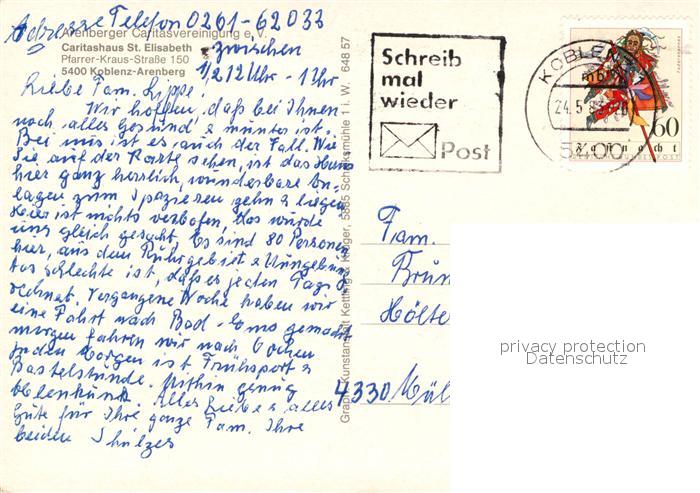 Adresse Telefon 0261-62033
Arenberger Caritasvereinigung e. V.
Caritashaus St. Elisabeth
zwischen
Pfarrer-Kraus-Straße 150
1/2 12 Uhr - 1 Uhr
5400 Koblenz-Arenberg
Liebe Fam. Lippe!
Wir hoffen, daß bei Ihnen
noch alles gesund & munter ist.
Bei uns ist es auch der Fall. Wie
Sie auf der Karte sehen, ist das Haus
hier ganz herrlich, wunderbare An-
lagen zum Spazieren gehn & liegen
Hier ist nichts verboten, das wurde
uns gleich gesagt. Es sind 80 Personen
hier, aus dem Ruhrgebiet & Umgebung
Das schlechte ist, daß es jeden Tag
regnet. Vergangene Woche haben wir
eine Fahrt nach Bad-Ems gemacht
morgen fahren wir nach Cochem
Jeden Morgen ist Frühsport &
Bastelstunde. Mithin genug
Ablenkung. Alles Liebe & alles
Gute für Ihre ganze Fam. Ihre
beiden Shülzes
Graph. Kunstanstalt Kettling & Krüger, 5885 Schalksmühle 1 i. W. 648 57
Schreib
mal
wieder
Post
KOBLENZ
mb
24.5.83
5400
60
Fastnacht
DEUTSCHE BUNDESPOST
Fam.
Brun
Hölte
4330 Mül
privacy protection
Datenschutz